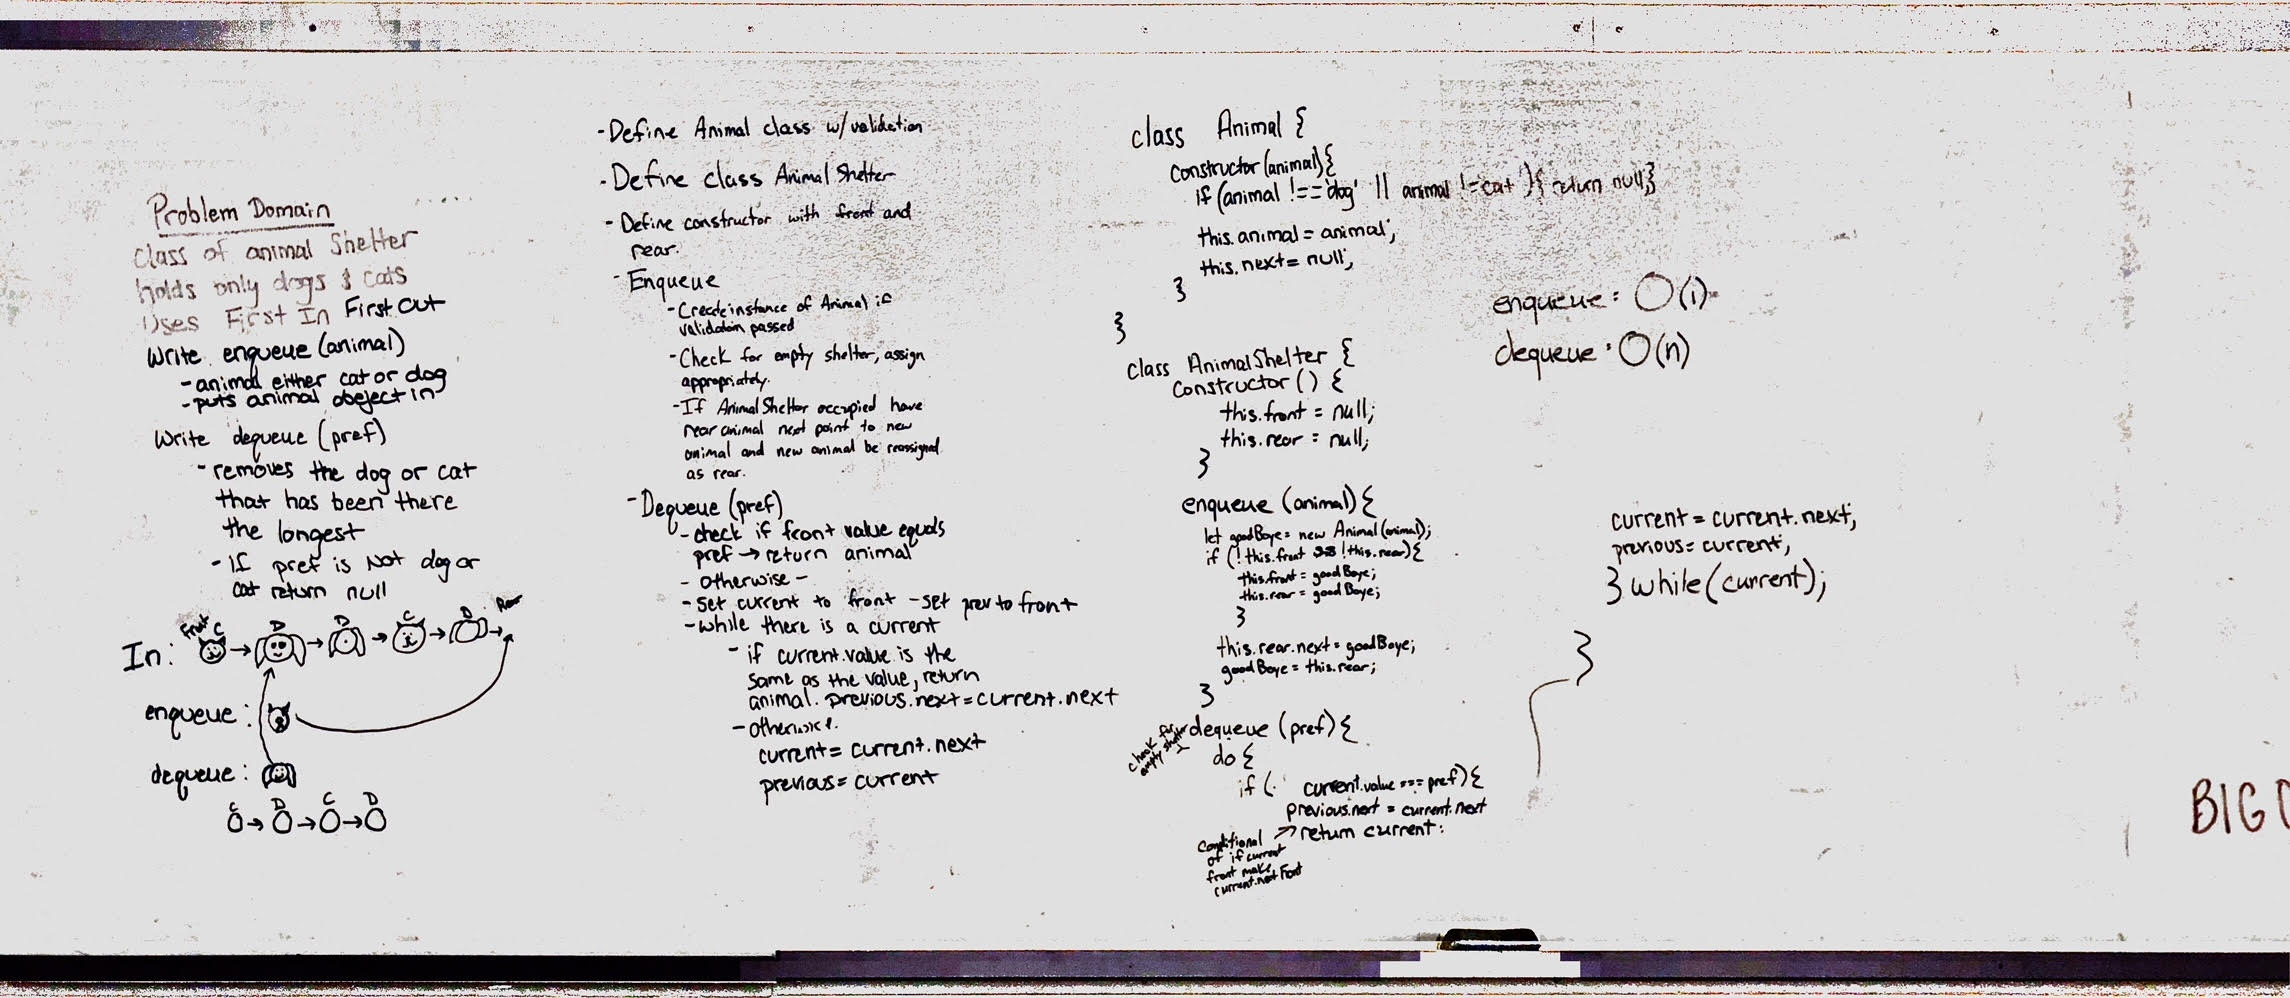 Problem Domain
Class of animal Shelter
holds only dogs & cats
Uses First In First Out
Write enqueue (animal)
- animal either cat or dog
- puts animal obeject in
Write dequeue (pref)
- removes the dog or cat
that has been there
the longest
- If pref is Not dog or
cat return null
Front C D D C D Rear
In:
enqueue:
dequeue:
C D C D
- Define Animal class w/ validation
- Define class Animal Shelter
- Define constructor with front and
rear.
- Enqueue
- Create instance of Animal if
validation passed
- Check for empty shelter, assign
appropriately.
- If Animal Shelter occupied have
rear animal next point to new
animal and new animal be reassigned
as rear.
- Dequeue (pref)
- check if front value equals
pref → return animal
- otherwise -
- set current to front - set prev to front
- while there is a current
- if current.value is the
same as the value, return
animal. previous.next = current.next
- otherwise.
current = current.next
previous = current
class Animal {
constructor (animal) {
if (animal !== 'dog' || animal != cat ) { return null; }
this.animal = animal;
this.next = null;
}
}
class AnimalShelter {
constructor () {
this.front = null;
this.rear = null;
}
enqueue (animal) {
let goodBoye = new Animal (animal);
if (! this.front && ! this.rear) {
this.front = goodBoye;
this.rear = goodBoye;
}
this.rear.next = goodBoye;
goodBoye = this.rear;
}
check for
empty shelter
dequeue (pref) {
do {
if ( current.value === pref) {
previous.next = current.next
return current;
conditional
of if current
front make
current.next front
enqueue: O(1)
dequeue: O(n)
current = current.next;
previous = current;
} while (current);
}
BIG